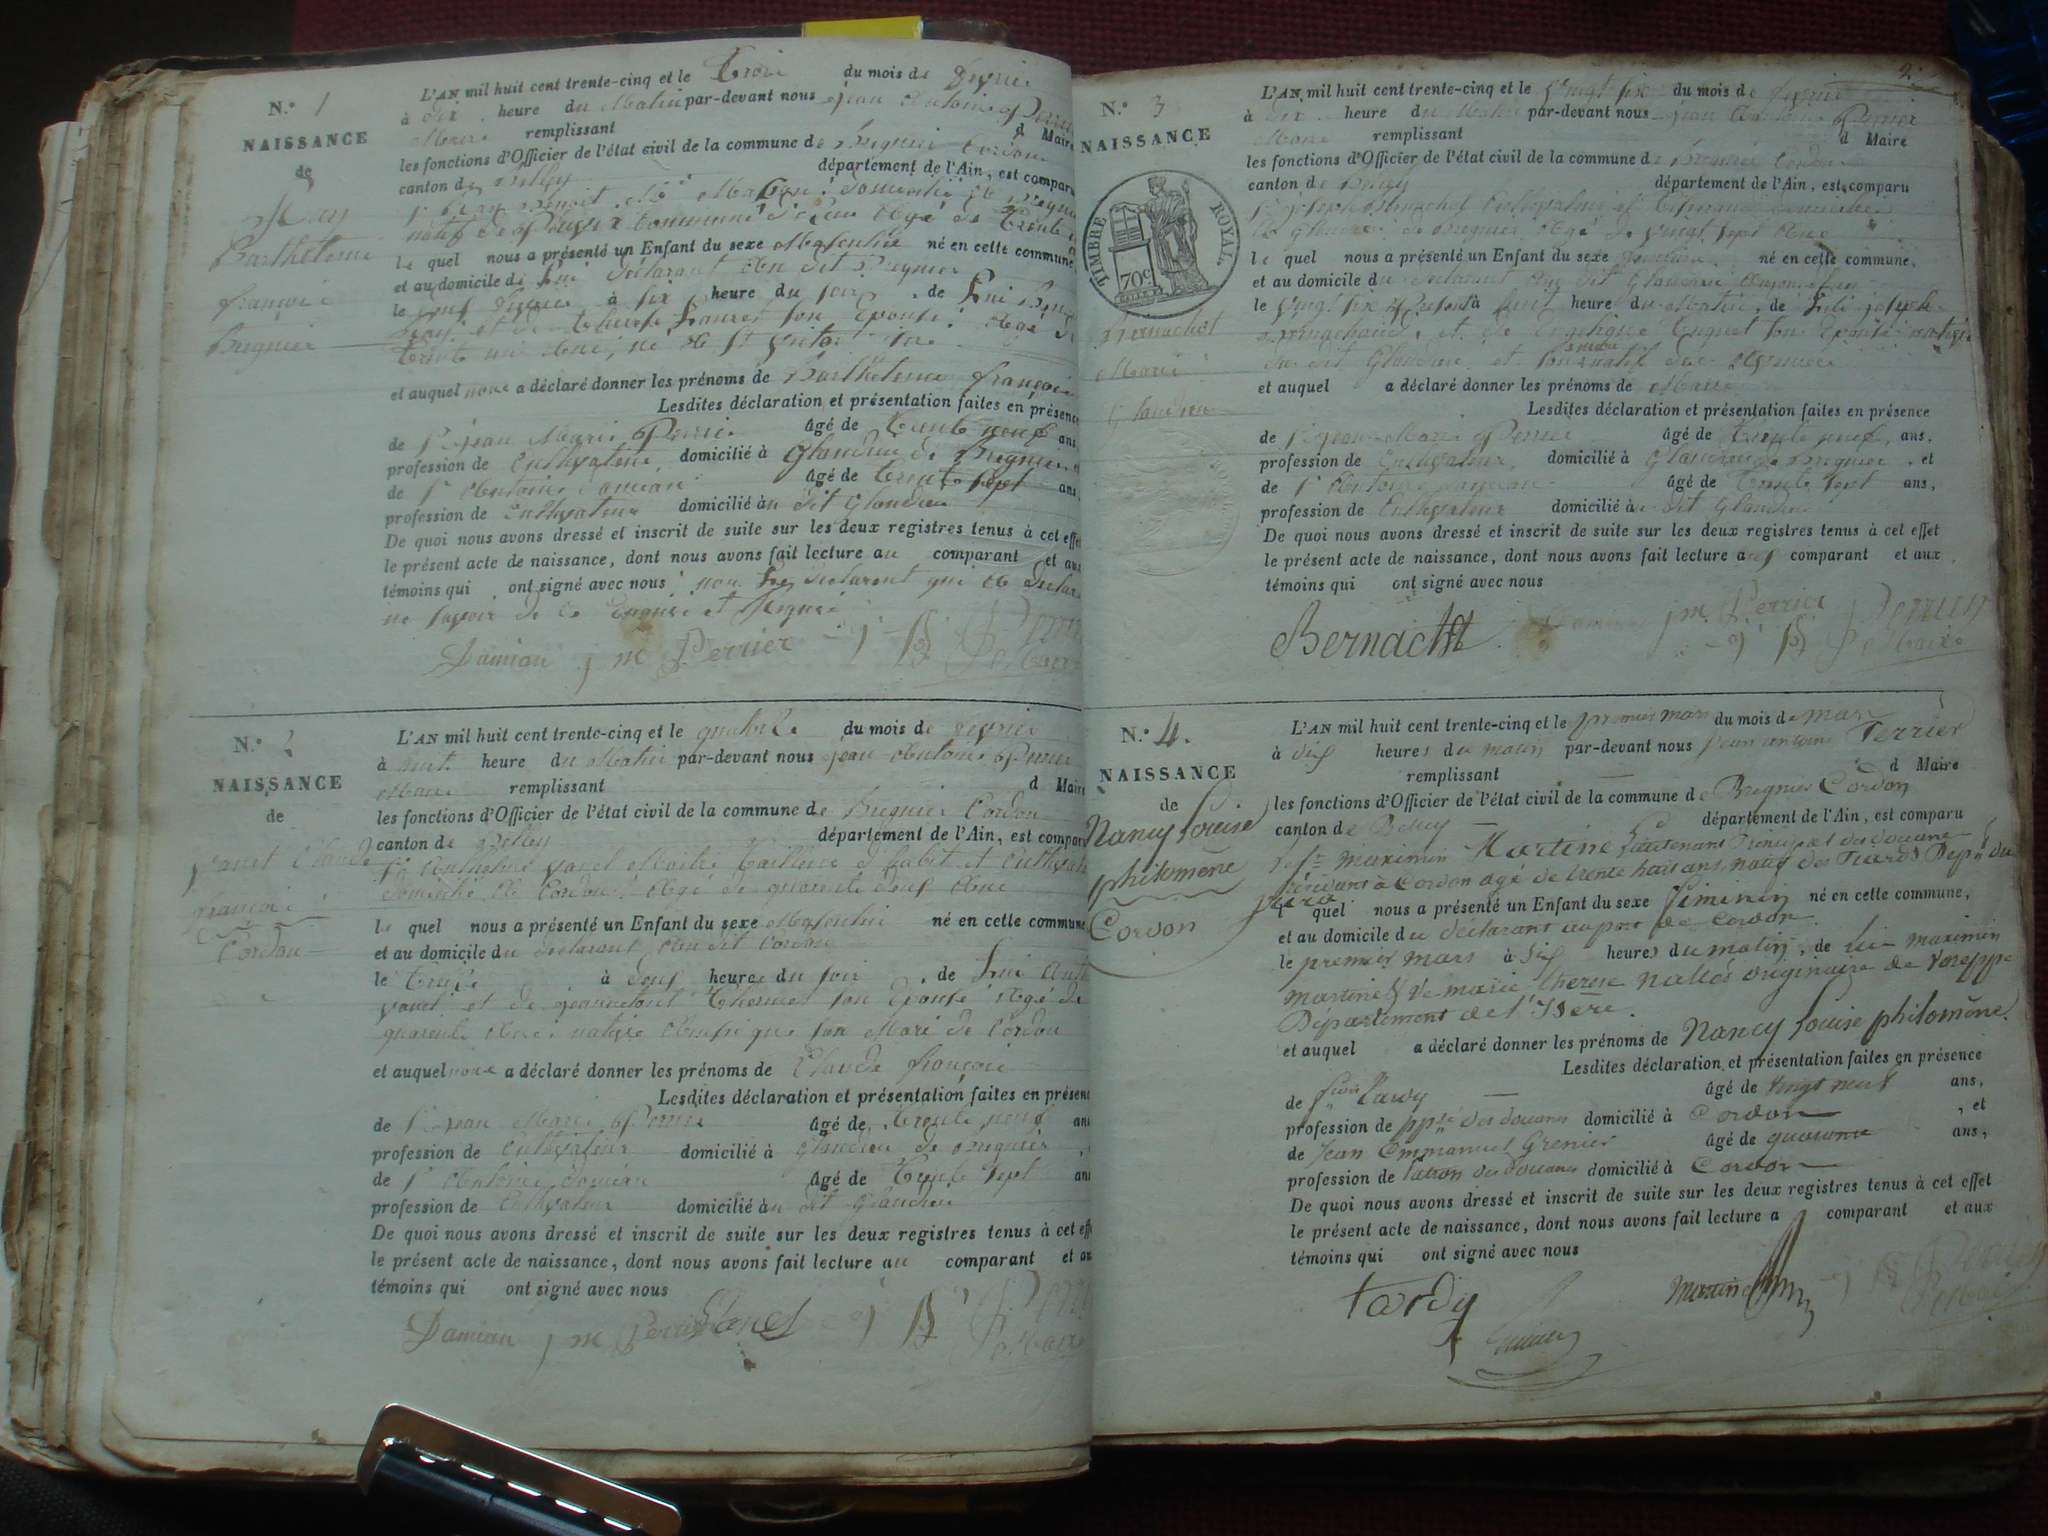 N.° 1
NAISSANCE
de
Barthelemi
françois
Bregnier
L'AN mil huit cent trente-cinq et le trois du mois de fevrier
à dix heure du Matin par-devant nous jean Antoine Perrier
Maire remplissant d Maire
les fonctions d'Officier de l'état civil de la commune de Bregnier Cordon
canton de Belley département de l'Ain, est comparu
le quel nous a présenté un Enfant du sexe Masculin né en cette commune,
et au domicile de lui déclarant au dit Bregnier
le deux fevrier à six heure du soir , de lui
et auquel nous a déclaré donner les prénoms de Barthelemi françois
Lesdites déclaration et présentation faites en présence
de Sr jean Marie Perrier âgé de trente neuf ans,
profession de Cultivateur, domicilié à Glandieu de Bregnier, et
de Sr Antoine Damian âgé de trente sept ans,
profession de Cultivateur domicilié au dit Glandieu
De quoi nous avons dressé et inscrit de suite sur les deux registres tenus à cet effet
le présent acte de naissance, dont nous avons fait lecture au comparant et aux
témoins qui ont signé avec nous non le déclarant qui a déclaré
ne savoir de ce enquis et requis
Damian j m Perrier
N.° 2
NAISSANCE
de
françois
Cordon
L'AN mil huit cent trente-cinq et le quatorze du mois de fevrier
à huit heure du Matin par-devant nous jean Antoine Perrier
Maire remplissant d Maire
les fonctions d'Officier de l'état civil de la commune de Bregnier Cordon
canton de Belley département de l'Ain, est comparu
domicilié à Cordon, Agé de quarante deux Ans
le quel nous a présenté un Enfant du sexe Masculin né en cette commune,
et au domicile du déclarant Au dit Cordon
le treize à deux heures du soir , de lui
quarante Ans native Ainsi que son Mari de Cordon
et auquel nous a déclaré donner les prénoms de Claude françois
Lesdites déclaration et présentation faites en présence
de Sr jean Marie Perrier âgé de trente neuf ans
profession de Cultivateur domicilié à Glandieu de Bregnier,
de Sr Antoine Damian âgé de trente sept ans
profession de Cultivateur domicilié au dit Glandieu
De quoi nous avons dressé et inscrit de suite sur les deux registres tenus à cet effet
le présent acte de naissance, dont nous avons fait lecture au comparant et aux
témoins qui ont signé avec nous
Damian j m Perrier
2.
N.° 3
NAISSANCE
TIMBRE ROYAL.
70c
Bernachot
Marie
Glandieu
L'AN mil huit cent trente-cinq et le vingt six du mois de fevrier
à dix heure du Matin par-devant nous jean Antoine Perrier
Maire remplissant d Maire
les fonctions d'Officier de l'état civil de la commune de Bregnier Cordon
canton de Belley département de l'Ain, est comparu
à Glandieu de Bregnier Agé de vingt sept Ans
le quel nous a présenté un Enfant du sexe féminin né en cette commune,
et au domicile du déclarant au dit Glandieu
le vingt six à huit heure du Matin, de lui joseph
et auquel a déclaré donner les prénoms de Marie
Lesdites déclaration et présentation faites en présence
de Sr jean Marie Perrier âgé de trente neuf, ans,
profession de Cultivateur, domicilié à Glandieu de Bregnier , et
de Sr Antoine Damian âgé de trente sept ans,
profession de Cultivateur domicilié au dit Glandieu
De quoi nous avons dressé et inscrit de suite sur les deux registres tenus à cet effet
le présent acte de naissance, dont nous avons fait lecture aux comparant et aux
témoins qui ont signé avec nous
Bernachot Damian j m Perrier
N.° 4.
NAISSANCE
de
Nancy Louise
philomene
Cordon
L'AN mil huit cent trente-cinq et le premier mars du mois de mars
à dix heures du matin par-devant nous jean antoine Perrier
remplissant d Maire
les fonctions d'Officier de l'état civil de la commune de Bregnier Cordon
canton de Belley département de l'Ain, est comparu
maximin Martine Lieutenant Principal des douane
résidant à Cordon agé de trente huit ans,
quel nous a présenté un Enfant du sexe féminin né en cette commune,
et au domicile du déclarant au port de Cordon
le premier mars à six heures du matin, de lui maximin
martine & de marie therese originaire de Voreppe
Département de l'Isère.
et auquel a déclaré donner les prénoms de Nancy Louise philomène.
Lesdites déclaration et présentation faites en présence
de tardy âgé de vingt neuf ans,
profession de ppsé des douanes domicilié à Cordon , et
de Jean Emmanuel Grenier âgé de quarante ans,
profession de Patron des Douanes domicilié à Cordon
De quoi nous avons dressé et inscrit de suite sur les deux registres tenus à cet effet
le présent acte de naissance, dont nous avons fait lecture a comparant et aux
témoins qui ont signé avec nous
tardy martine